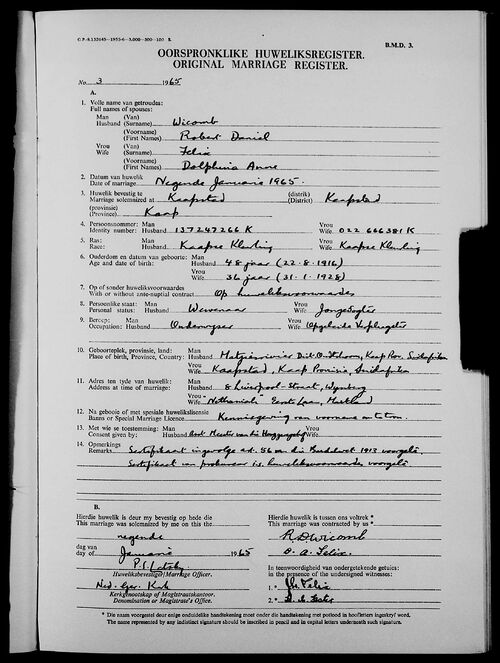 B.M.D. 3.
OORSPRONKLIKE HUWELIKSREGISTER.
ORIGINAL MARRIAGE REGISTER.
No. 3 1965
A.
1. Volle name van getroudes:
Full names of spouses:
Man (Van)
Husband (Surname) Wicomb
(Voorname)
(First Names) Robert Daniel
Vrou (Van)
Wife (Surname) Felix
(Voorname)
(First Names) Dolphina Anne
2. Datum van huwelik
Date of marriage Negende Januarie 1965.
3. Huwelik bevestig te (distrik)
Marriage solemnized at Kaapstad (District) Kaapstad
(provinsie)
(Province) Kaap
4. Persoonsnommer: Man Vrou
Identity number: Husband 137247266 K Wife 022 666381 K
5. Ras: Man Vrou
Race: Husband Kaapse Kleurling Wife Kaapse Kleurling
6. Ouderdom en datum van geboorte: Man
Age and date of birth: Husband 48 jaar (22.8.1916)
Vrou
Wife 36 jaar (31.1.1928)
7. Op of sonder huweliksvoorwaardes
With or without ante-nuptial contract Op huweliksvoorwaardes
8. Persoonlike staat: Man Vrou
Personal status: Husband Wewenaar Wife Jongedogter
9. Beroep: Man Vrou
Occupation: Husband Onderwyser Wife Opgeleide Verpleegster
10. Geboorteplek, provinsie, land: Man
Place of birth, Province, Country: Husband Dist. Oudtshoorn, Kaap Prov. Suidafrika
Vrou
Wife Kaapstad, Kaap Provinsie, Suidafrika
11. Adres ten tyde van huwelik: Man
Address at time of marriage: Husband 8 Liverpool-Straat, Wynberg
Vrou
Wife Nathaniel Eerste Laan, Maitland
12. Na gebooie of met spesiale huwelikslisensie
Banns or Special Marriage Licence. Kennisgewing van voorneme om te trou.
13. Met wie se toestemming: Man Vrou
Consent given by: Husband Meester van die Hooggeregshof Wife
14. Opmerkings
Remarks Sertifikaat ingevolge art. 56 van die Boedelwet 1913 voorgelê.
Sertifikaat van prokureur i.s. huweliksvoorwaardes voorgelê
B.
Hierdie huwelik is deur my bevestig op hede die
This marriage was solemnized by me on this the
negende
dag van
day of Januarie 1965
Huweliksbevestiger/Marriage Officer.
Ned. Ger. Kerk
Kerkgenootskap of Magistraatskantoor.
Denomination or Magistrate's Office.
Hierdie huwelik is tussen ons voltrek *
This marriage was contracted by us *
R D Wicomb
D. A. Felix.
In teenwoordigheid van ondergetekende getuies:
in the presence of the undersigned witnesses:
1.* Felix
2.*
* Die naam voorgestel deur enige onduidelike handtekening moet onder die handtekening met potlood in hoofletters ingeskryf word.
The name represented by any indistinct signature should be inscribed in pencil and in capital letters underneath such signature.